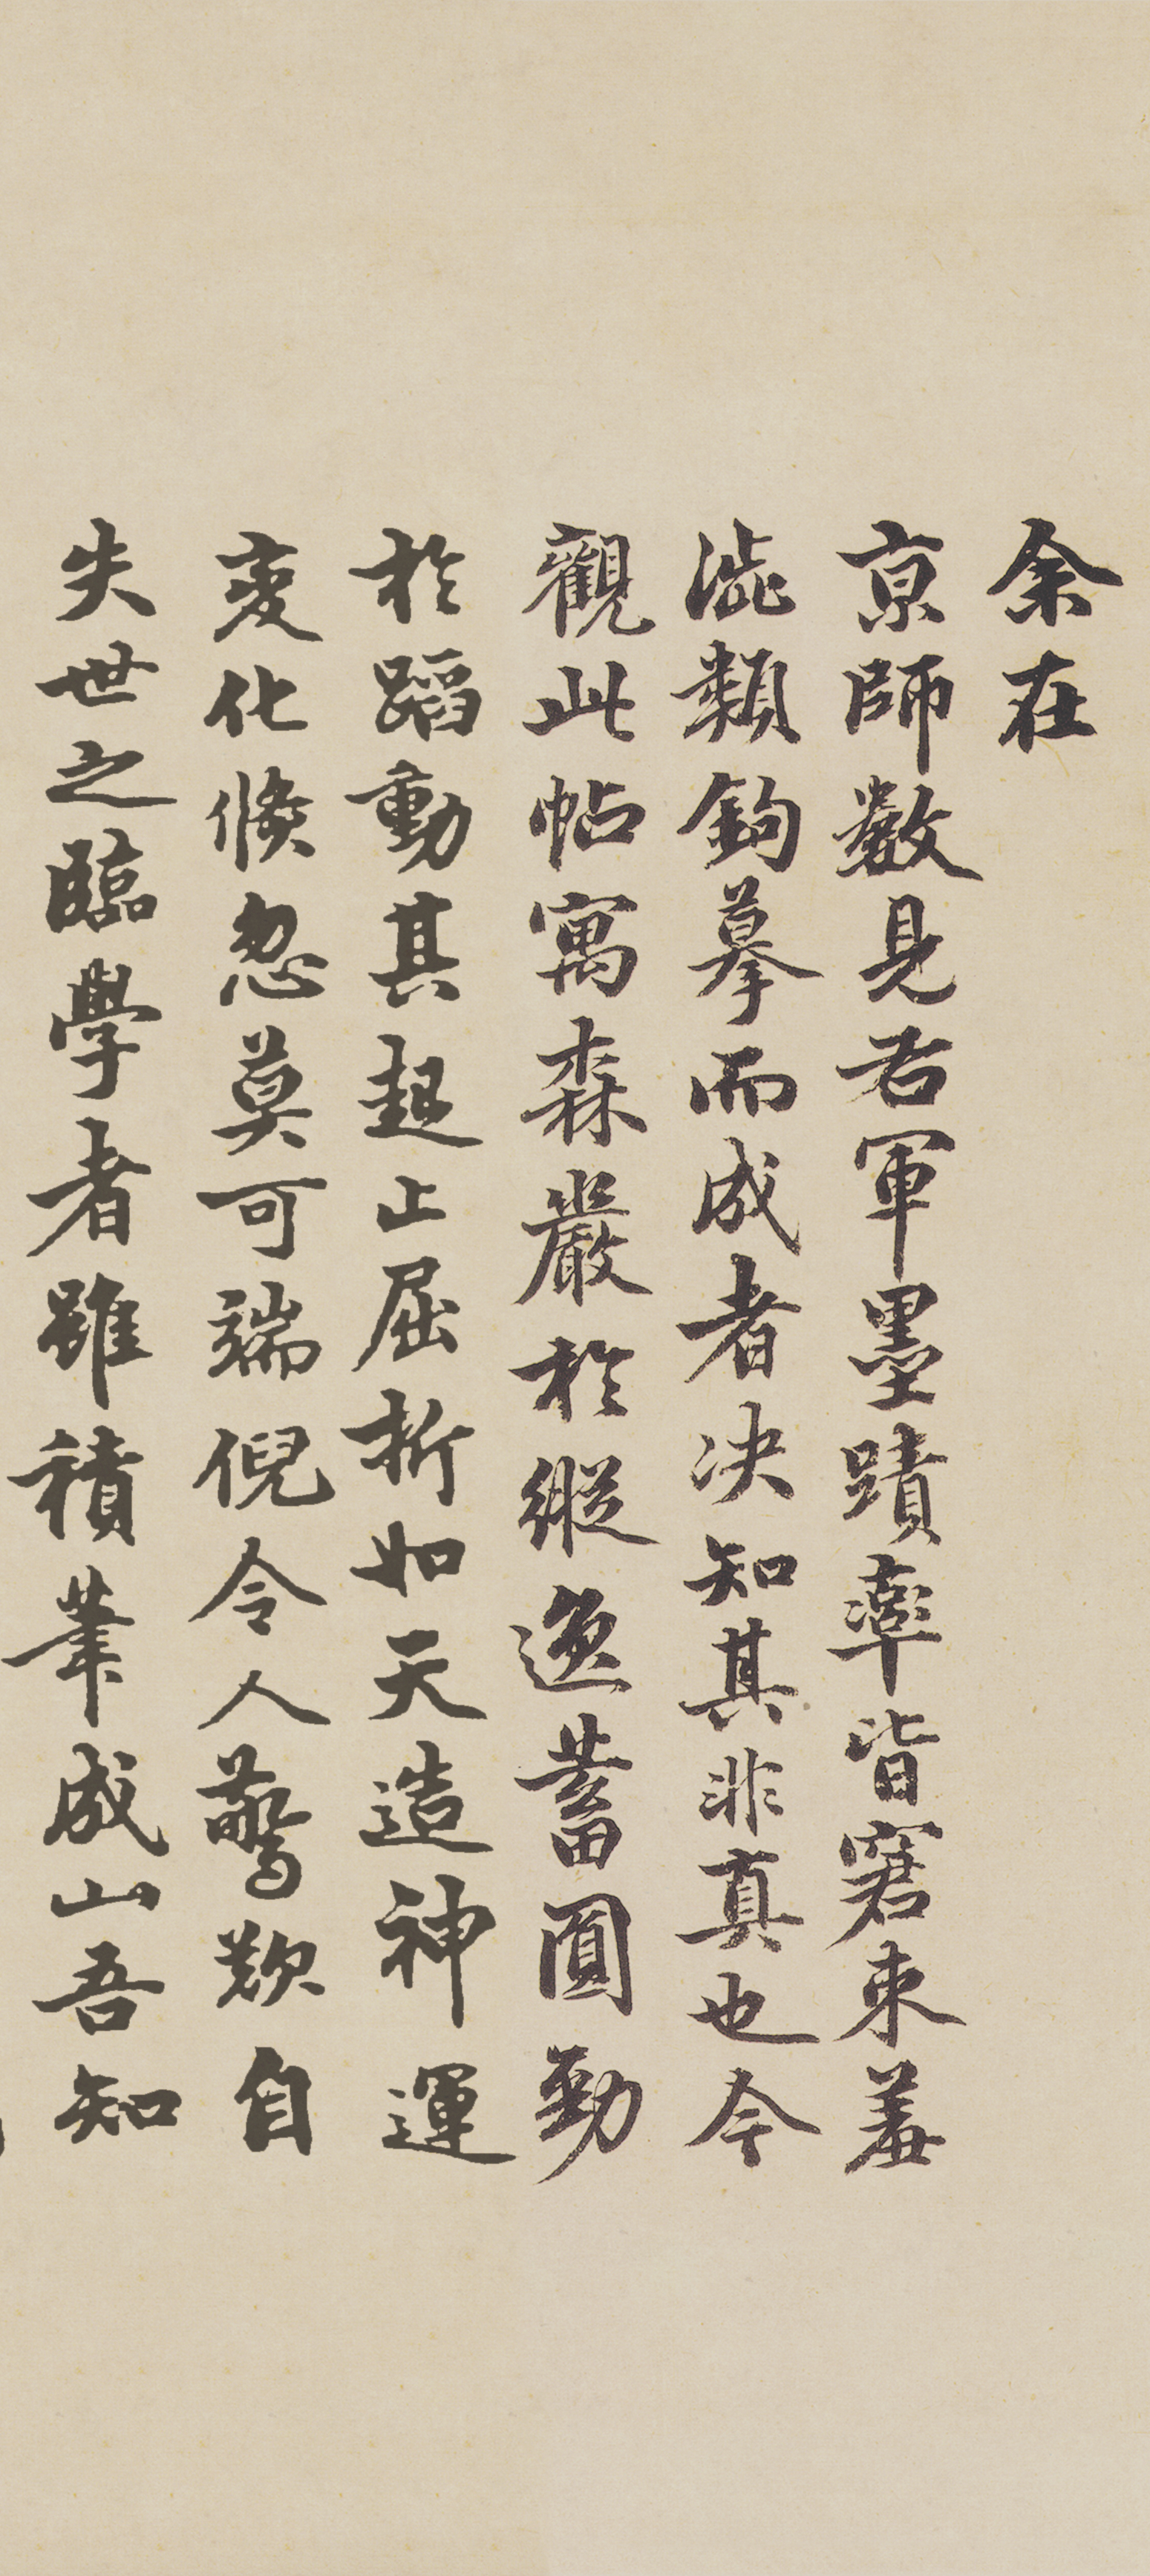 余在
京師數見右軍墨蹟率皆窘束羞
澁類鉤摹而成者决知其非真也今
觀此帖寓森嚴於縱逸蓄圓勁
於蹈動其起止屈折如天造神運
變化倏忽莫可端倪令人驚歎自
失世之臨學者雖積筆成山吾知